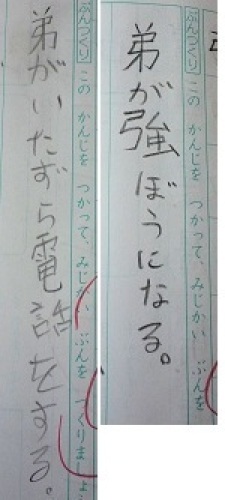 ぶんづくり このかんじを つかって、みじかい ぶんを
弟が強ぼうになる。
ぶんづくり このかんじを つかって、みじかい ぶんを つくりましょ
弟がいたずら電話をする。